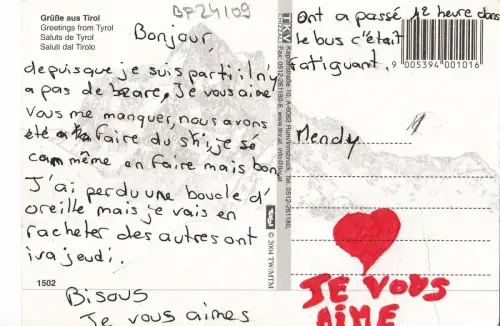 Grüße aus Tirol
Greetings from Tyrol
Saluts de Tyrol
Saluti dal Tirolo
BF24/09
Bonjour,
depuis que je suis parti il n'y
a pas de bzare, Je vous aime
Vous me manquer, nous avons
été faire du ski je sé
cam même en faire mais bon,
J'ai perdu une boucle d'
oreille mais je vais en
racheter des autres ont
iva jeudi.
1502
Bisous
Je vous aimes
TKV
Kaplanstraße 10, A-6063 Rum/Innsbruck, Tel. 0512-261180,
© 2004 TW/MTM
Ont a passé 12 heure dans
le bus c'était
fatiguant.
9 005394 001016
Mendy
JE VOUS
AIME